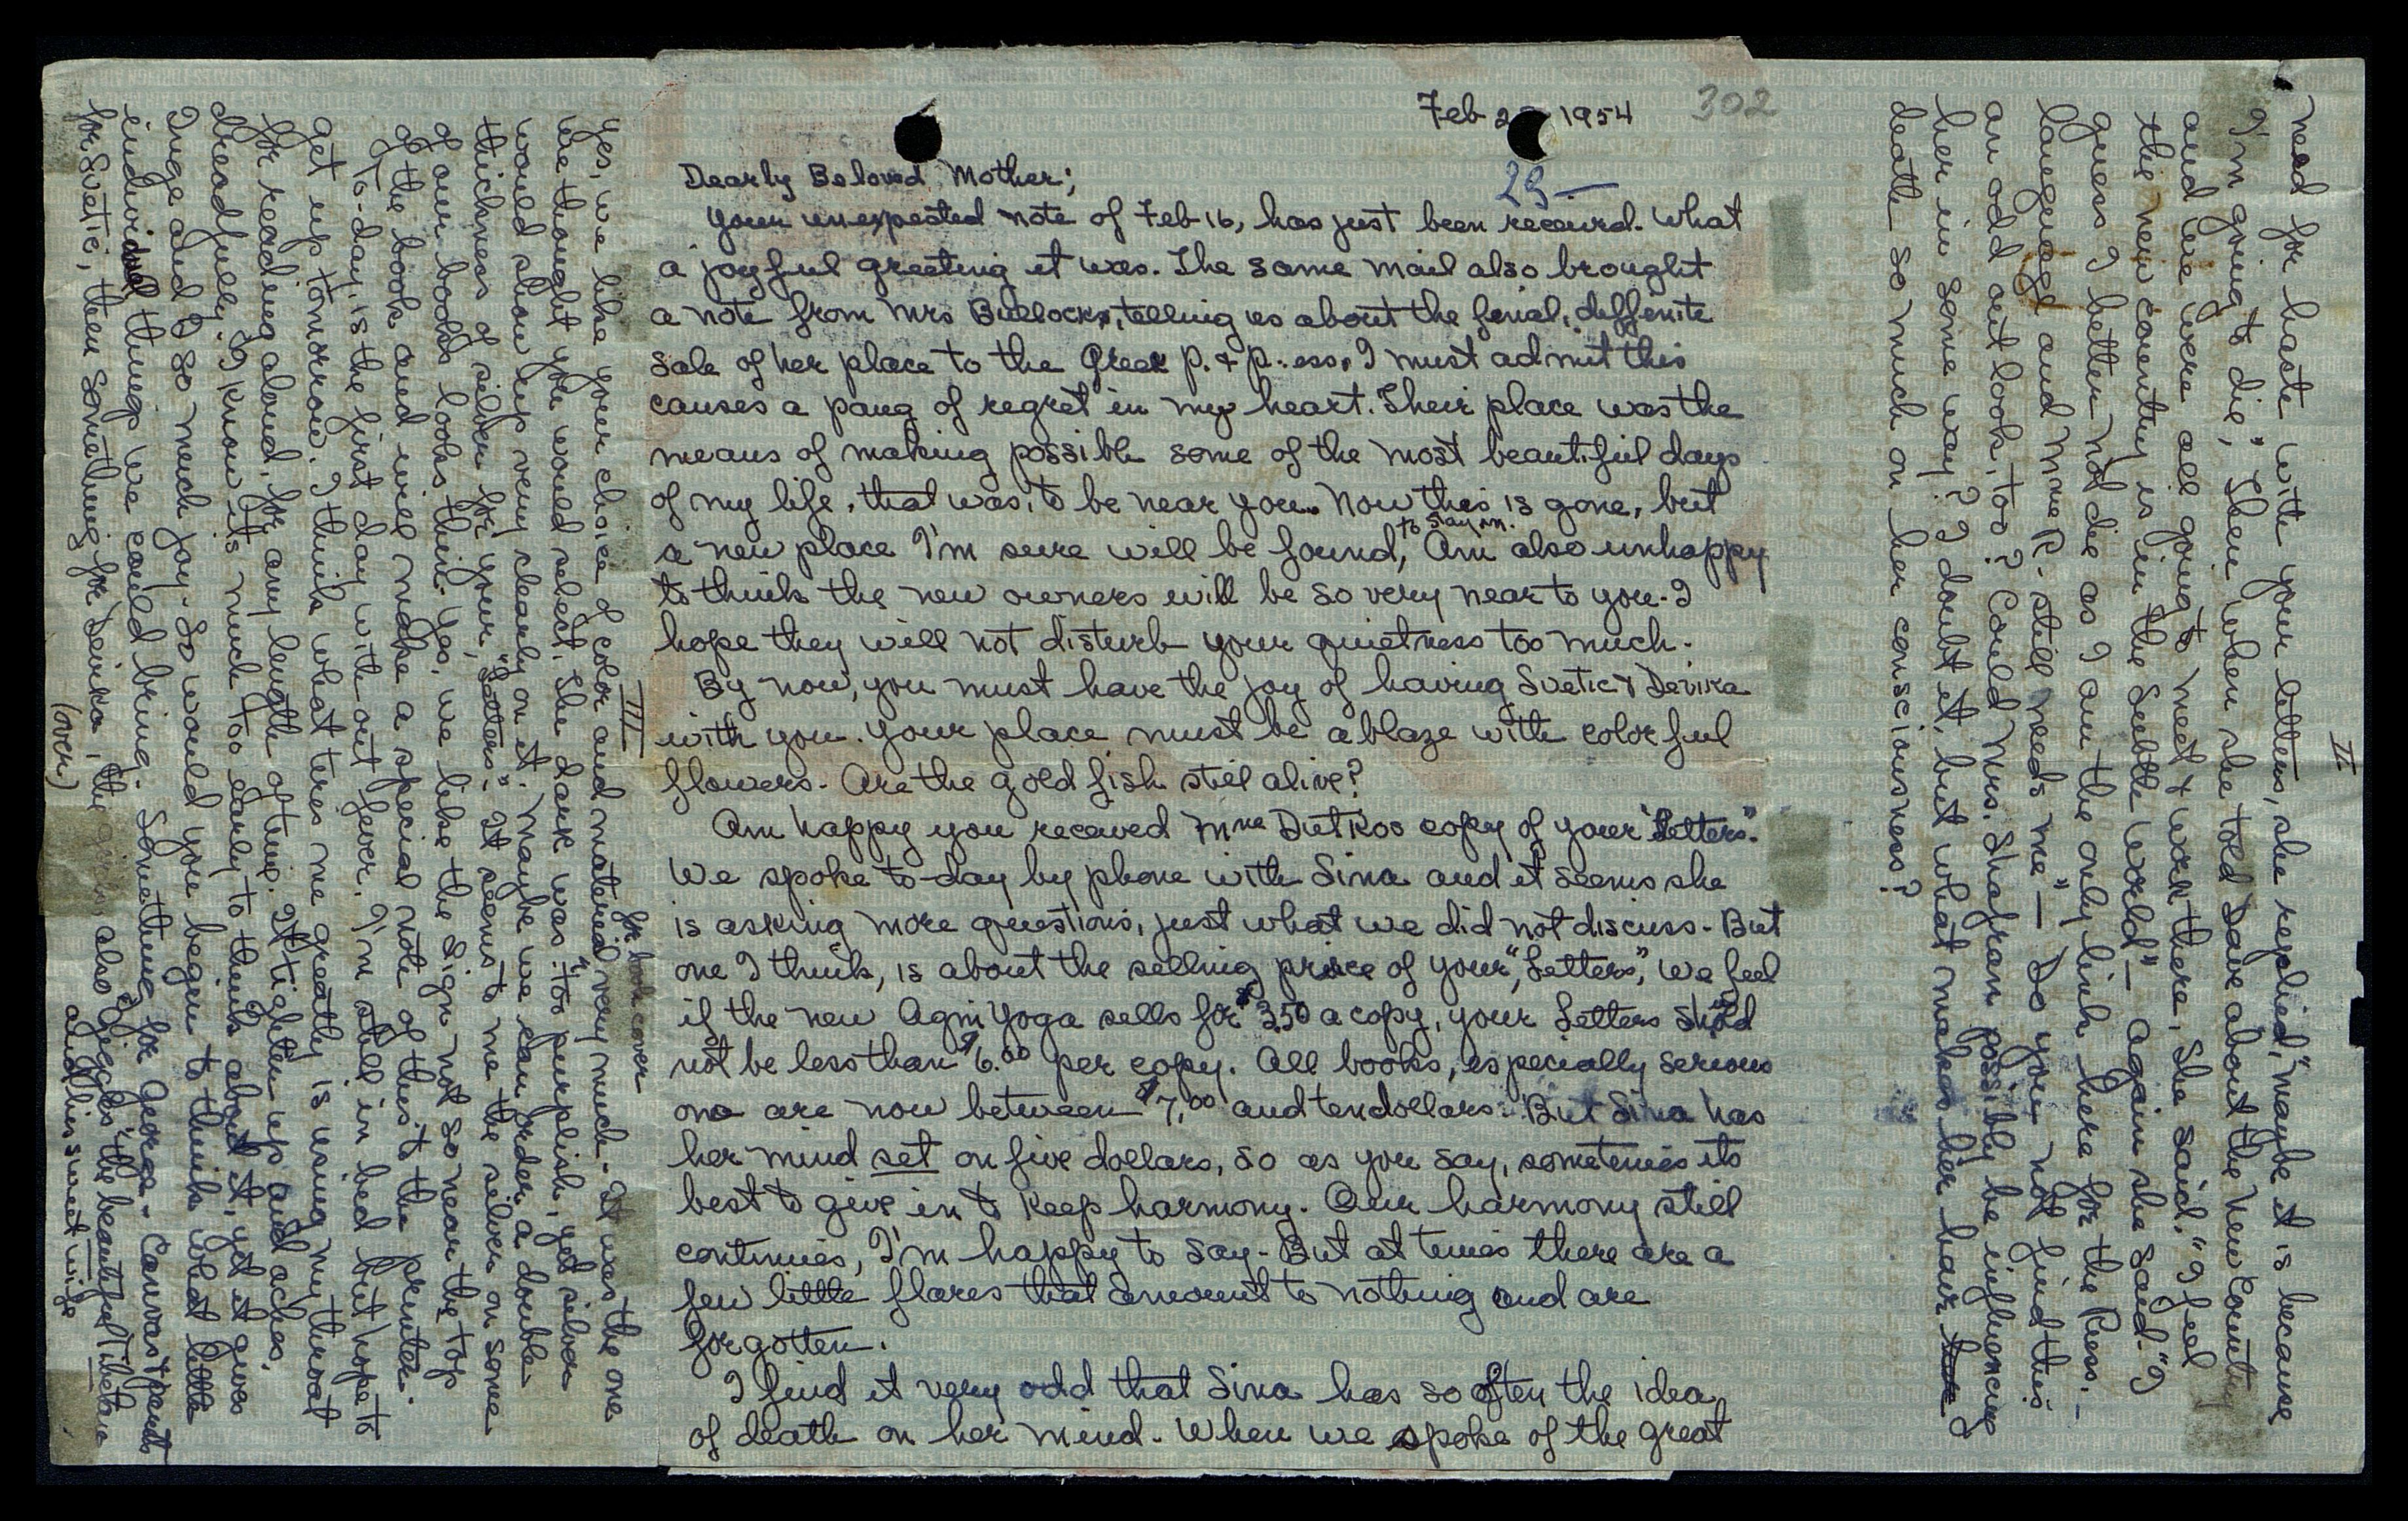 302
Feb 2 1954
29-
Dearly Beloved Mother;
Your unexpected note of Feb 16, has just been received. What
a joyful greeting it was. The same mail also brought
a note from Mrs Bullock, telling us about the final, deffenite
sale of her place to the Greek P. & P.:ess. I must admit this
causes a pang of regret in my heart. Their place was the
means of making possible some of the most beautiful days
of my life, that was, to be near you. Now this is gone, but
a new place I'm sure will be found, to stay in. Am also unhappy
to think the new owners will be so very near to you. I
hope they will not disturb your quietness too much.
By now, you must have the joy of having Svetic & Devika
with you. Your place must be ablaze with colorful
flowers. Are the gold fish still alive?
Am happy you received Mme Dutkos copy of your "Letters".
We spoke to-day by phone with Sina and it seems she
is asking more questions, just what we did not discuss. But
one I think, is about the selling price of your, "Letters", We feel
if the new Agni Yoga sells for $3.50 a copy, your Letters shold
not be less than $6.00 per copy. All books, especially serious
one are now between $7.00 and ten dollars. But Sina has
her mind set on five dollars, so as you say, sometimes its
best to give in to keep harmony. Our harmony still
continues, I'm happy to say. But at times there are a
few little flares that amount to nothing and are
forgotten.
I find it very odd that Sina has so often the idea
of death on her mind. When we spoke of the great
II
need for haste with your letters, she replied, "maybe it is because
I'm going to die," Then when she told Dave about the New Country
and we were all going to meet & work there, she said, "I feel
the new country is in the Subtle World" — Again she said - "I
guess I better not die as I am the only link here for the Russ. -
language and Mme R. still needs me" — Do you not find this
an odd out look, too? Could Mrs. Shafran possibly be influencing
her in some way? I doubt it, but what makes her have
death so much on her consciousness?
III
for book cover
Yes, we like your choice of color and material very much - It was the one
we thought you would select. The dark was "too purplish, yet silver
would show up very clearly on it. Maybe we can order a double
thickness of silver for your, "Letters". It seems to me the silver on some
of our books looks thin. Yes, we like the sign not so near the top
of the book and will make a special note of this to the printer.
To-day, is the first day with out fever. I'm still in bed but hope to
get up tomorrow. I think what tires me greatly is using my throat
for reading aloud, for any length of time. It tightens up and aches
dreadfully. I know its much too early to think about it, yet it gives
Inge and I so much joy. So would you begin to think what little
individual things we could bring. Something for George - Canvas & paints
for Svetic, then something for Devika, the also Jigcha, the beautiful Tibetan
and his sweet wife
(over)